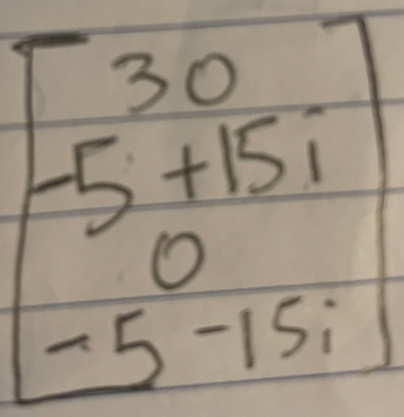 30
-5 +15i
0
-5 -15i